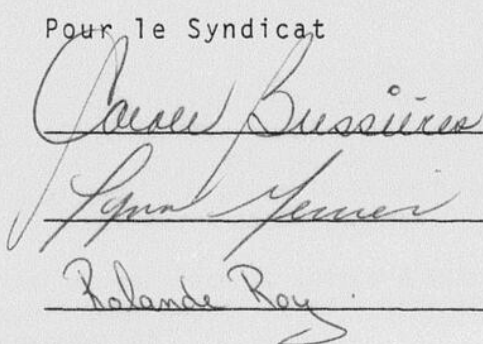 Pour le Syndicat
Carole Bussières
Lynn
Rolande Roy